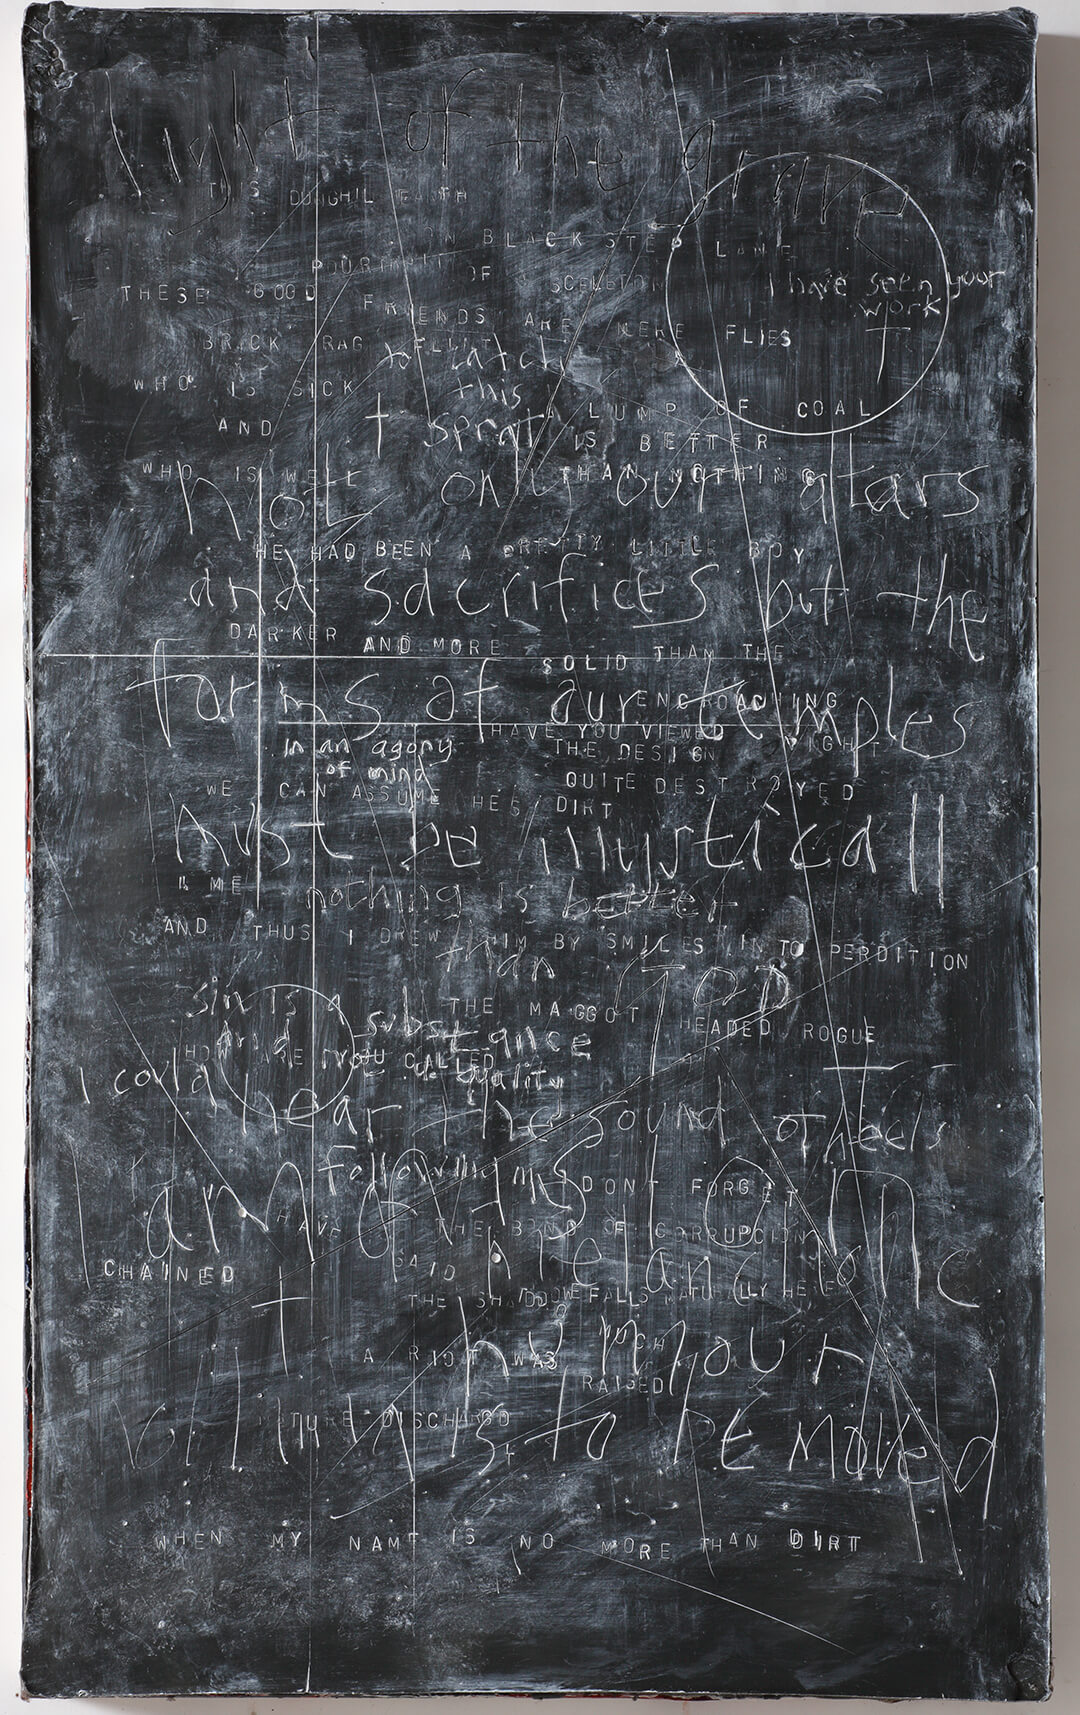 light of the grave
THIS DUNGHIL EARTH
ON BLACK STEP LANE
POURTRAIT OF SCELETON
I have seen your
work
THESE GOOD FRIENDS ARE MERE FLIES
BRICK RAG FLINT
to catch
this
sprat
WHO IS SICK
AND
WHO IS WELL
A LUMP OF COAL
IS BETTER
THAN NOTHING
not only our altars
HE HAD BEEN A PRETTY LITTLE BOY
and sacrifices but the
DARKER AND MORE SOLID THAN THE
ENCROACHING
NIGHT
forms of our temples
HAVE YOU VIEWED
THE DESIGN
QUITE DESTROYED
in an agony
of mind
WE CAN ASSUME HE IS DIRT
must be mysticall
nothing is better
than GOD
AND THUS I DREW HIM BY SMILES INTO PERDITION
THE MAGGOT HEADED ROGUE
sin is a substance
and
a quality
HOW ARE YOU CALLED
I could hear the sound of heels
following me
DONT FORGET
I am of
melancholic
HAVE THE BOND OF CORRUPCION
CHAINED
SAID
THE SHADDOWE FALLS NATURALLY HERE
humour
A RIOT WAS
RAISED
DISCHARGD
to be moved
WHEN MY NAME IS NO MORE THAN DIRT